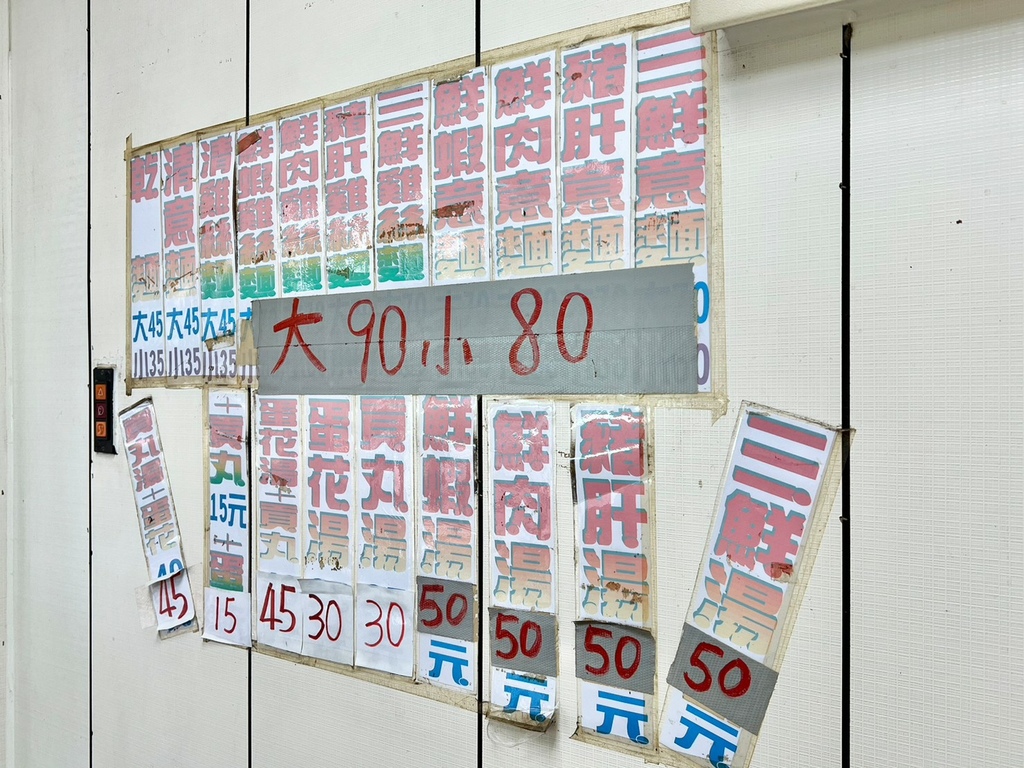 乾麵 大45 小35
清意麵 大45 小35
清雞絲麵 大45 小35
鮮蝦雞絲麵
鮮肉雞絲麵
豬肝雞絲麵
三鮮雞絲麵
鮮蝦意麵
鮮肉意麵
豬肝意麵
三鮮意麵
大90小80
貢丸湯+蛋花 45
+貢丸15元+蛋 15
蛋花湯+貢丸 45
蛋花湯 30
貢丸湯 30
鮮蝦湯 50元
鮮肉湯 50元
豬肝湯 50元
三鮮湯 50元